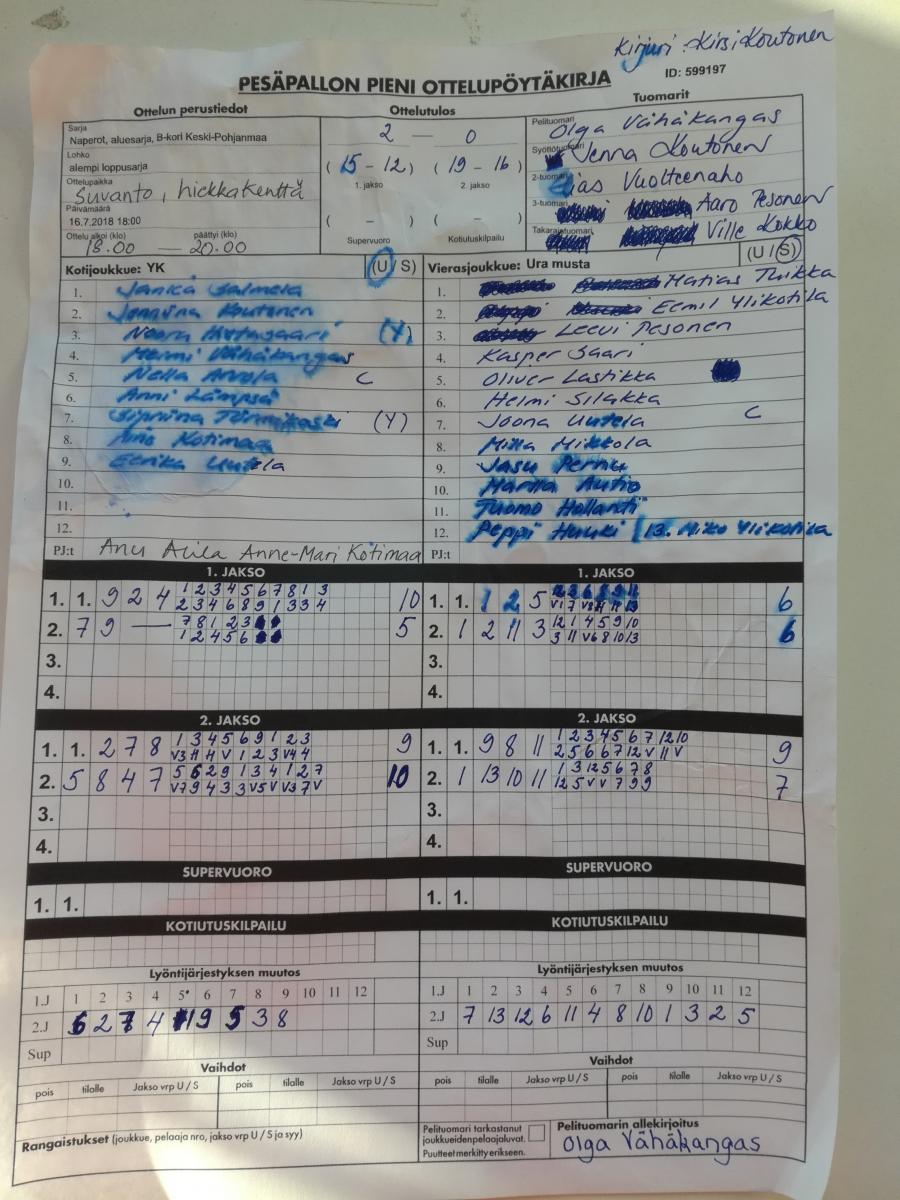 Kirjuri : Kirsi Koutonen
PESÄPALLON PIENI OTTELUPÖYTÄKIRJA
ID: 599197
Ottelun perustiedot
Ottelutulos
Tuomarit
Sarja
Naperot, aluesarja, B-kori Keski-Pohjanmaa
2 — 0
Pelituomari
Olga Vähäkangas
Lohko
alempi loppusarja
( 15 - 12 ) ( 19 - 16 )
1. jakso
2. jakso
Syöttötuomari
Jenna Koutonen
Ottelupaikka
Suvanto, hiekkakenttä
2-tuomari
Elias Vuolteenaho
Päivämäärä
16.7.2018 18:00
( - ) ( - )
3-tuomari
Aaro Pesonen
Ottelu alkoi (klo) päättyi (klo)
18.00 — 20.00
Supervuoro
Kotiutuskilpailu
Takarajatuomari
Ville Kokko
Kotijoukkue: YK
(U / S)
Vierasjoukkue: Ura musta
(U / S)
1. Janica Salmela
2. Jenniina Koutonen
3. Noora (Y)
4. Hermi Vähäkangas
5. Nella Arvola C
6. Anni Lämpsä
7. (Y)
8. Aino Kotimaa
9. Eerika Uutela
10.
11.
12.
PJ:t Anu Alila Anne-Mari Kotimaa
1. Matias Tuikka
2. Eemil Ylikotila
3. Leevi Pesonen
4. Kasper Saari
5. Oliver Lastikka
6. Helmi Silakka
7. Joona Uutela C
8. Milla Mikkola
9. Jasu Pernu
10. Martta Autio
11. Tuomo Hollanti
12. Peppi Huuki | 13. Miko Ylikotila
PJ:t
1. JAKSO
1. 1. 9 2 4 1 2 3 4 5 6 7 8 1 3 10
2 3 4 6 8 9 1 3 3 4
2. 7 9 — 7 8 1 2 3 5
1 2 4 5 6
3.
4.
1. JAKSO
1. 1. 1 2 5 6
2. 1 2 11 3 12 1 4 5 9 10 6
3 11 V6 8 10 13
3.
4.
2. JAKSO
1. 1. 2 7 8 1 3 4 5 6 9 1 2 3 9
2. 5 8 4 7 5 6 2 9 1 3 4 1 2 7 10
V7 9 4 3 3 V5 V V3 7 V
3.
4.
2. JAKSO
1. 1. 9 8 11 1 2 3 4 5 6 7 12 10 9
2 5 6 6 7 12 V 11 V
2. 1 13 10 11 1 3 12 5 6 7 8 7
12 5 V V 7 9 9
3.
4.
SUPERVUORO
1. 1.
SUPERVUORO
1. 1.
KOTIUTUSKILPAILU
KOTIUTUSKILPAILU
Lyöntijärjestyksen muutos
1.J 1 2 3 4 5 6 7 8 9 10 11 12
2.J 6 2 7 4 1 9 5 3 8
Sup
Lyöntijärjestyksen muutos
1.J 1 2 3 4 5 6 7 8 9 10 11 12
2.J 7 13 12 6 11 4 8 10 1 3 2 5
Sup
Vaihdot
pois tilalle Jakso vrp U / S pois tilalle Jakso vrp U / S
Vaihdot
pois tilalle Jakso vrp U / S pois tilalle Jakso vrp U / S
Rangaistukset (joukkue, pelaaja nro, jakso vrp U / S ja syy)
Pelituomari tarkastanut
joukkueiden pelaajaluvat.
Puutteet merkitty erikseen.
Pelituomarin allekirjoitus
Olga Vähäkangas